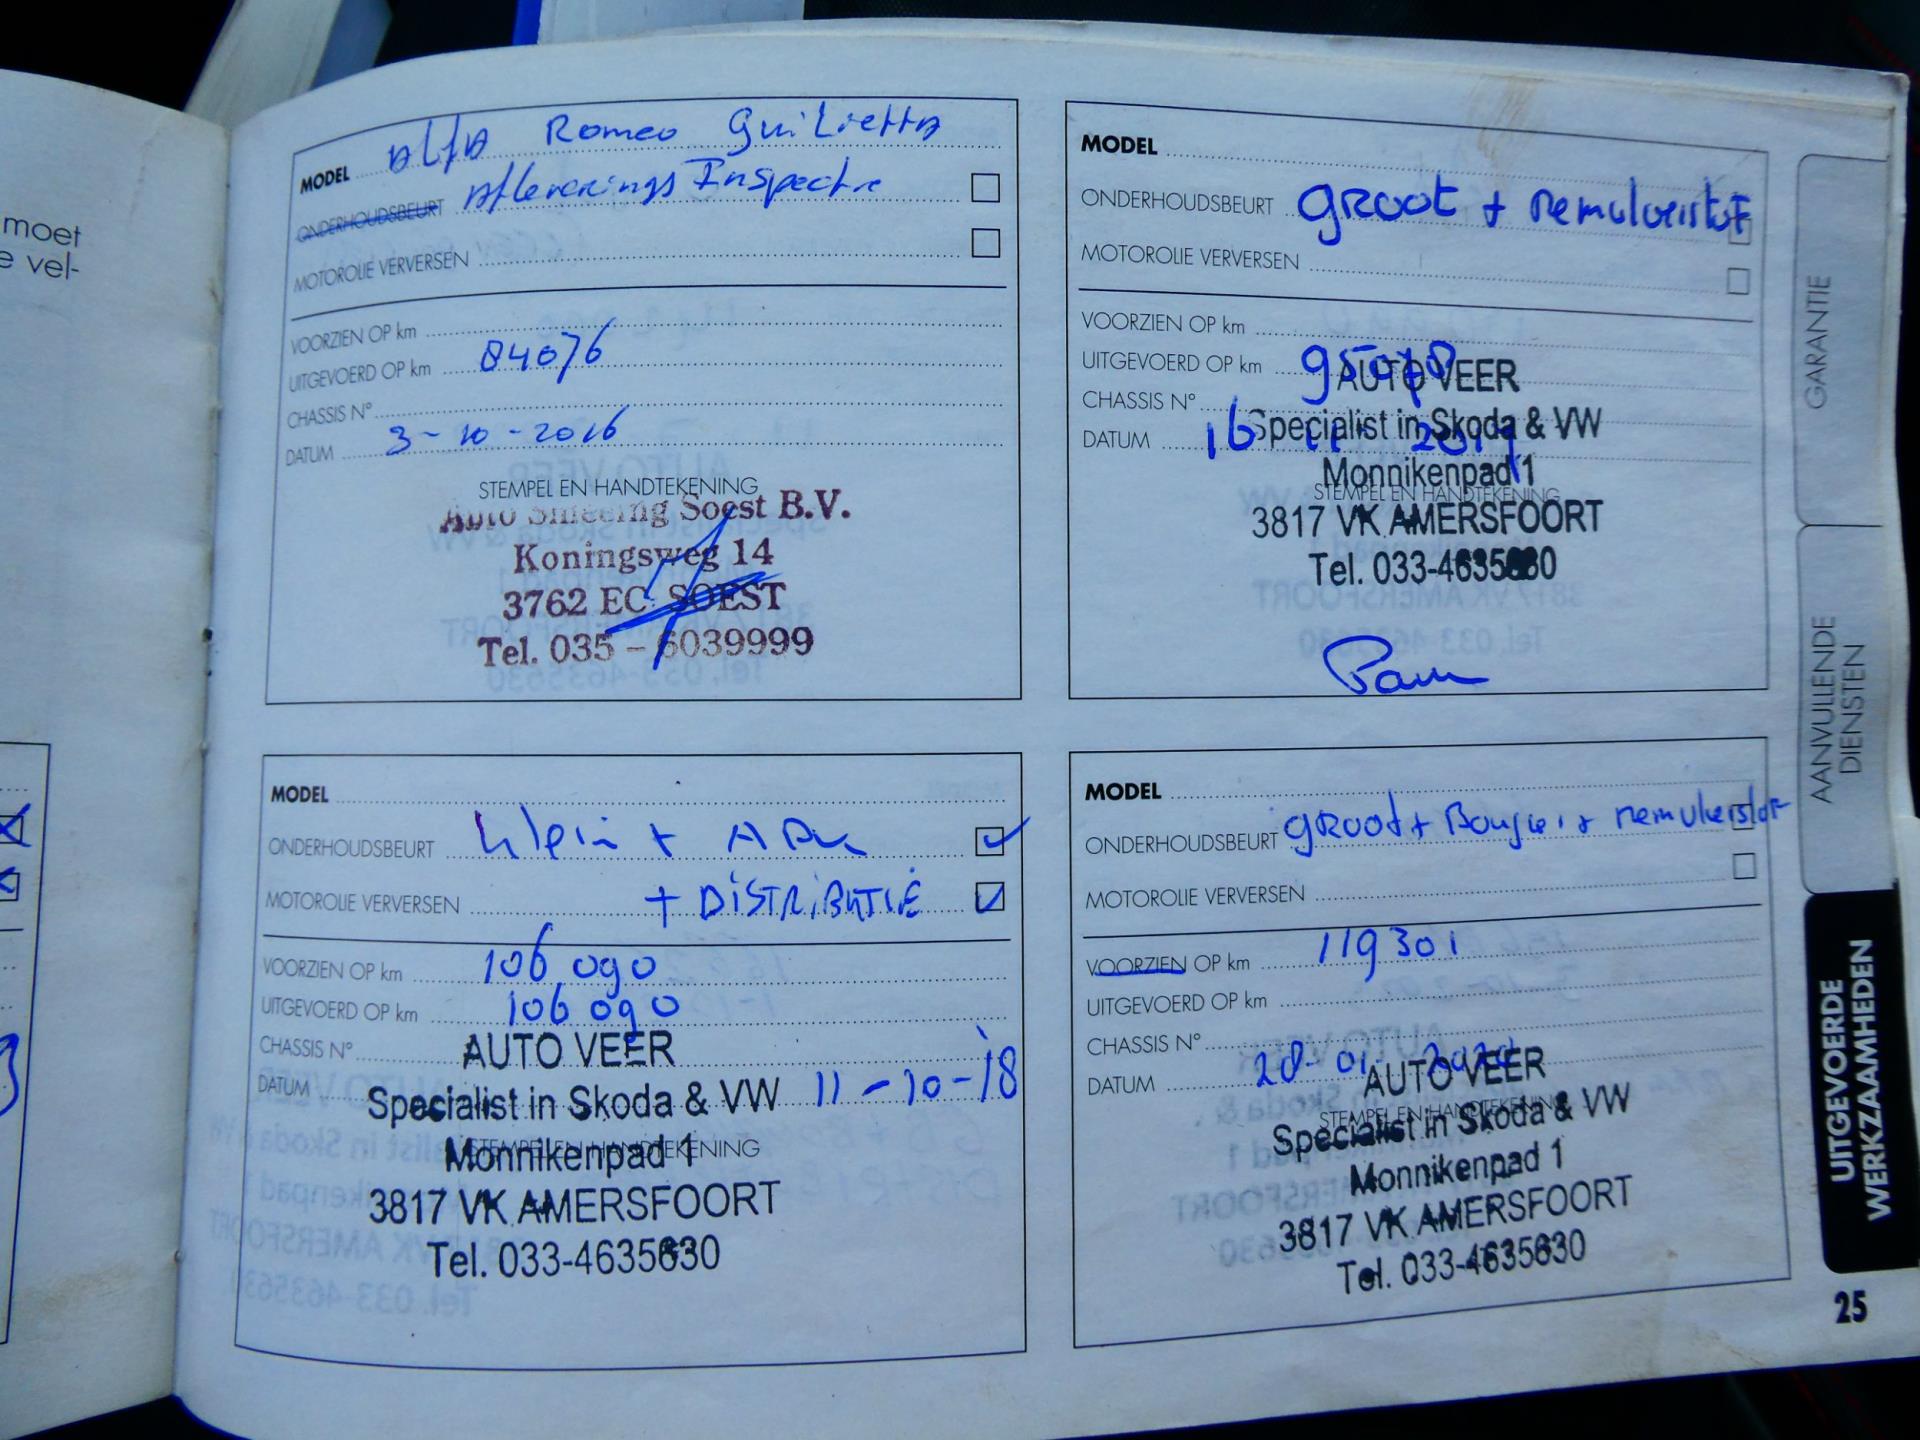 moet
e vel-
MODEL Alfa Romeo Guilietta
ONDERHOUDSBEURT Afleverings Inspectie
MOTOROLIE VERVERSEN
VOORZIEN OP km
UITGEVOERD OP km 84076
CHASSIS N°
DATUM 3-10-2016
STEMPEL EN HANDTEKENING
Auto Smeeing Soest B.V.
Koningsweg 14
3762 EC SOEST
Tel. 035 - 6039999
MODEL
ONDERHOUDSBEURT GROOT + Remvloeistof
MOTOROLIE VERVERSEN
VOORZIEN OP km
UITGEVOERD OP km 95078
AUTO VEER
CHASSIS N°
Specialist in Skoda & VW
DATUM 16 11 2017
Monnikenpad 1
STEMPEL EN HANDTEKENING
3817 VK AMERSFOORT
Tel. 033-4635630
MODEL
ONDERHOUDSBEURT Klein + APK
MOTOROLIE VERVERSEN + DISTRIBUTIE
VOORZIEN OP km 106 090
UITGEVOERD OP km 106 090
CHASSIS N°
AUTO VEER
DATUM 11-10-18
Specialist in Skoda & VW
STEMPEL EN HANDTEKENING
Monnikenpad 1
3817 VK AMERSFOORT
Tel. 033-4635630
MODEL
ONDERHOUDSBEURT GROOT + Bougies + remvloeistof
MOTOROLIE VERVERSEN
VOORZIEN OP km 119301
UITGEVOERD OP km
CHASSIS N°
DATUM 28-01-2020
AUTO VEER
STEMPEL EN HANDTEKENING
Specialist in Skoda & VW
Monnikenpad 1
3817 VK AMERSFOORT
Tel. 033-4635630
GARANTIE
AANVULLENDE
DIENSTEN
UITGEVOERDE
WERKZAAMHEDEN
25